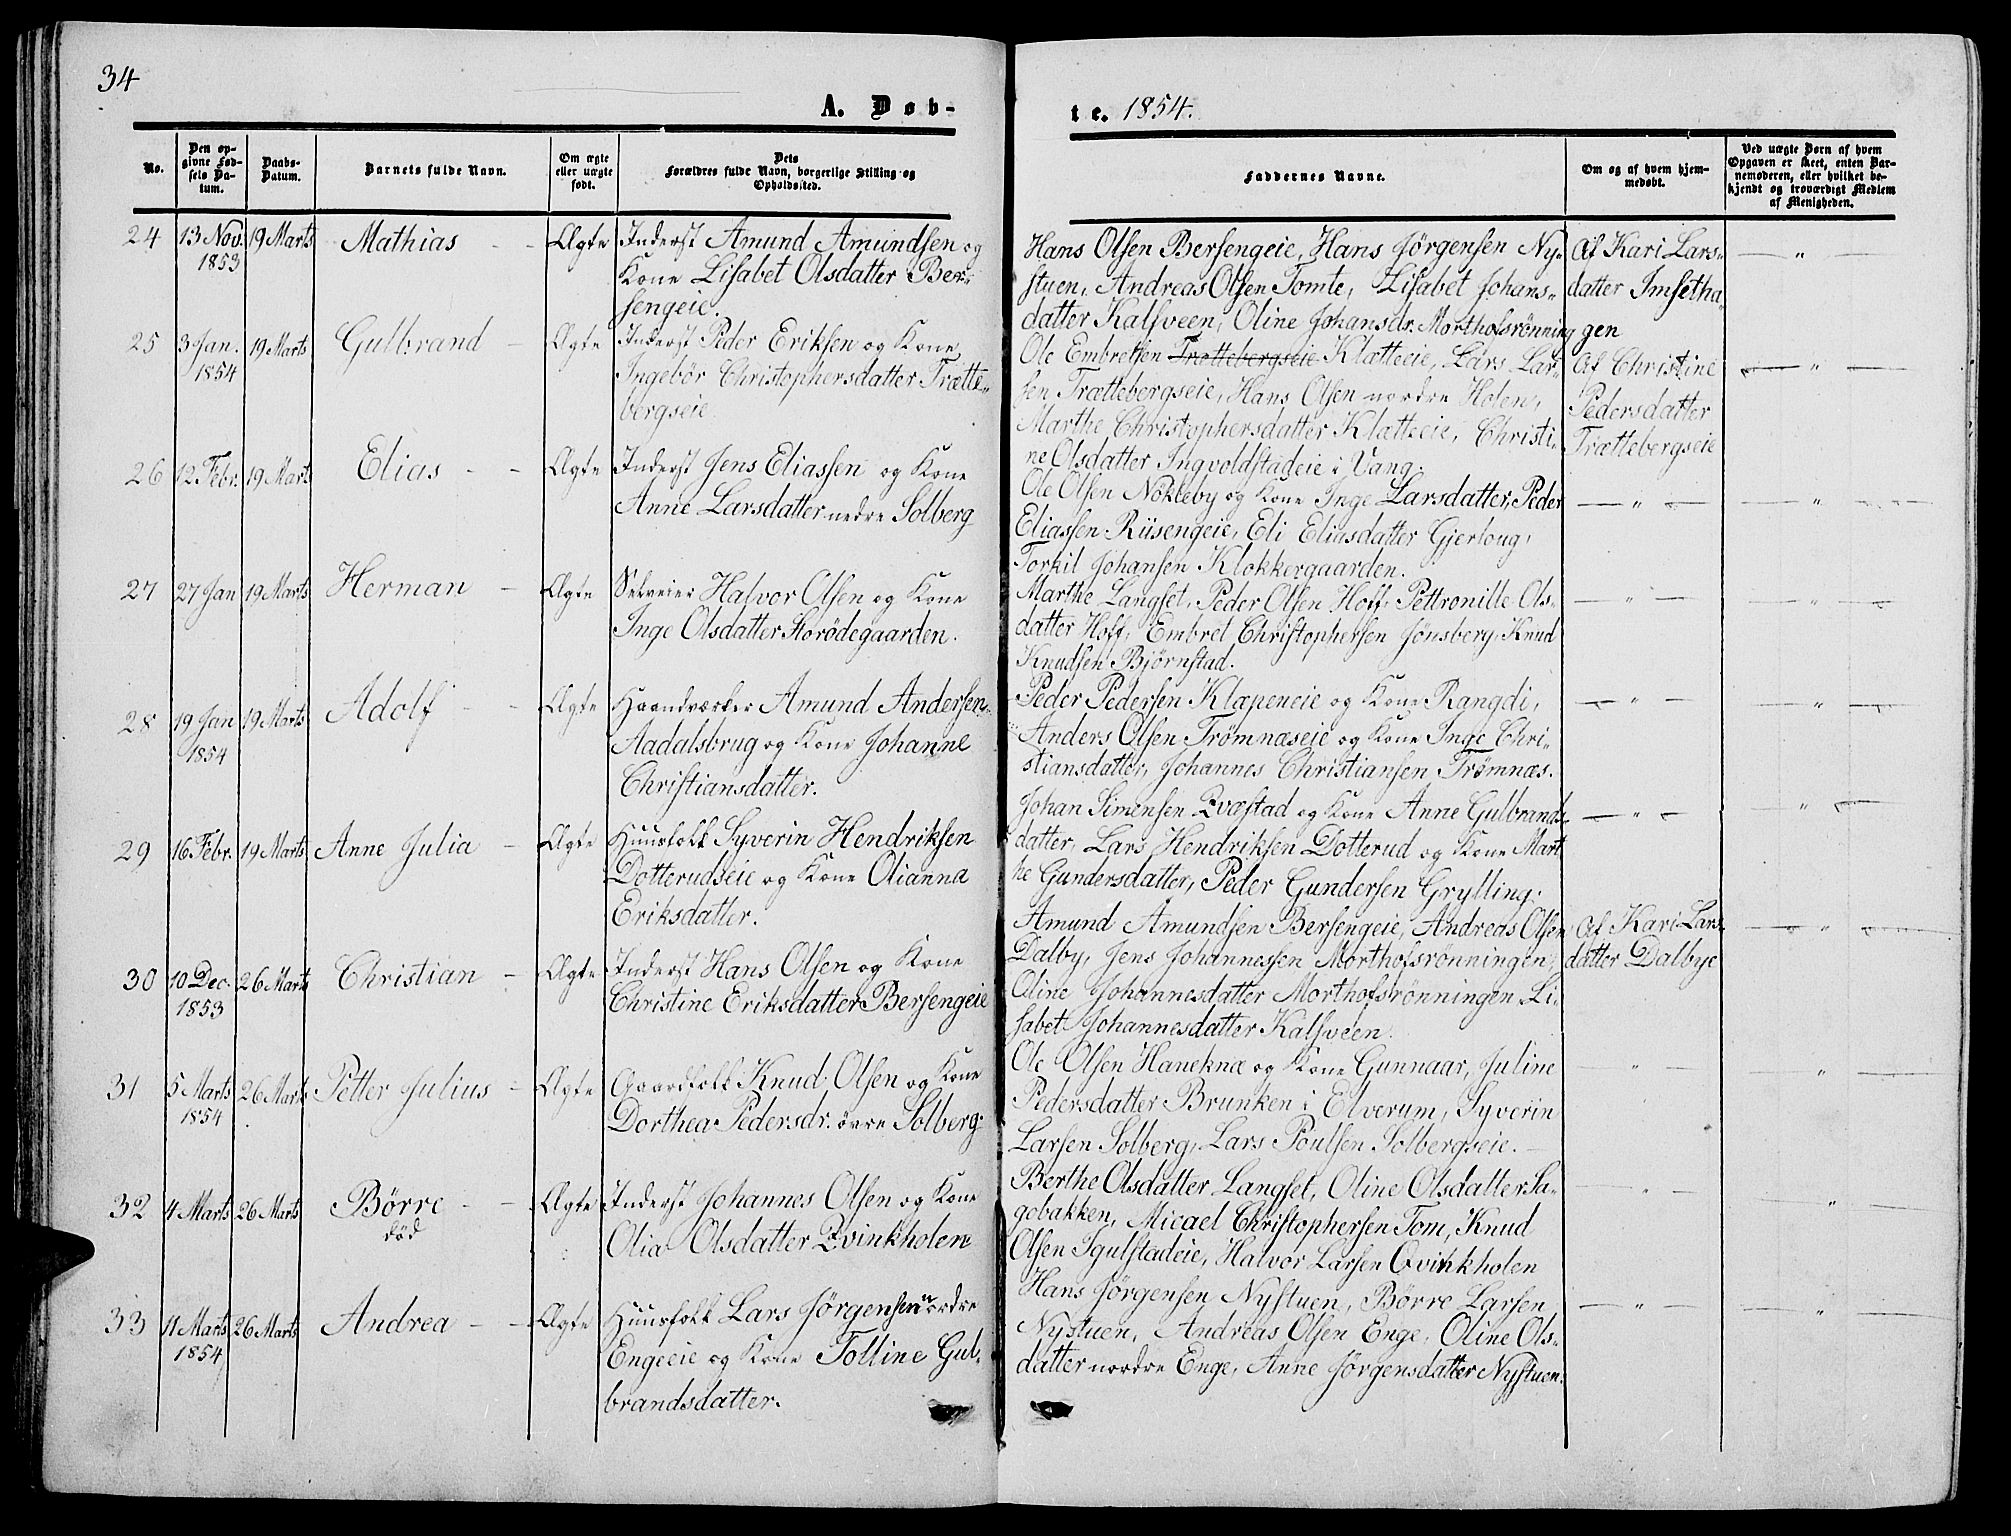 34
A. Døb-
te. 1854.
No.
Den op-
givne Fød-
sels Da-
tum.
Daabs-
Datum.
Barnets fulde Navn.
Om ægte
eller uægte
født.
Dets
Forældres fulde Navn, borgerlige Stilling og
Opholdssted.
Faddernes Navne.
Om og af hvem hjem-
medøbt.
Ved uægte Børn af hvem
Opgaven er skeet, enten Bar-
nemoderen, eller hvilket be-
kjendt og troværdigt Medlem
af Menigheden.
24 13 Nov. 19 Marts Mathias - - Ægte Inderst Amund Amundsen og
1853 Kone Lisabet Olsdatter Ber-
sengeie.
Hans Olsen Bersengeie, Hans Jörgensen Ny- Af Kari Lars- — " —
stuen, Andreas Olsen Tomte, Lisabet Johans- datter Imsetha-
datter Kalsveen, Oline Johansdr. Morthofsrönning gen
25 3 Jan. 19 Marts Gulbrand - Ægte Inderst Peder Eriksen og Kone
1854 Ingebör Christophersdatter Trætte-
bergseie
Ole Embretsen Trættebergseie Klætteeie, Lars Lar- Af Christine — " —
sen Trættebergseie, Hans Olsen nordre Holen, Pedersdatter
Marthe Christophersdatter Klætteeie, Christi- Trættebergseie
ne Olsdatter Ingvoldstadeie i Vang.
26 12 Febr. 19 Marts Elias - - Ægte Inderst Jens Eliassen og Kone
Anne Larsdatter nedre Solberg
Ole Olsen Nökleby og Kone Inge Larsdatter, Peder — " — — " —
Eliassen Riisengeie, Eli Eliasdatter Gjerloug,
Torkil Johansen Klokkergaarden.
27 27 Jan 19 Marts Herman - Ægte Selveier Halvor Olsen og Kone
Inge Olsdatter Storödegaarden.
Marthe Langset, Peder Olsen Hoff, Pettronille Ols- — " — — " —
datter Hoff, Embret Christophersen Jönsberg, Knud
Knudsen Björnstad.
28 19 Jan 19 Marts Adolf - - Ægte Haandværker Amund Andersen
1854 Aadalsbrug og Kone Johanne
Christiansdatter.
Peder Pedersen Klæpeneie og Kone Rangdi, — " — — " —
Anders Olsen Trömnæseie og Kone Inge Chri-
stiansdatter, Johannes Christiansen Trömnæs.
29 16 Febr. 19 Marts Anne Julia - Ægte Huusfolk Syverin Hendriksen
Dotterudseie og Kone Olianna
Eriksdatter.
Johan Simensen Qvæstad og Kone Anne Gulbrands- — " — — " —
datter, Lars Hendriksen Dotterud og Kone Mart
he Gundersdatter, Peder Gundersen Grylling.
30 10 Dec. 26 Marts Christian - Ægte Inderst Hans Olsen og Kone
1853 Christine Eriksdatter Bersengeie
Amund Amundsen Bersengeie, Andreas Olsen Af Kari Lars- — " —
Dalby, Jens Johannessen Morthofsrönningen, datter Dalbye
Oline Johannesdatter Morthofsrönningen, Li-
sabet Johannesdatter Kalsveen.
31 5 Marts 26 Marts Petter Julius - Ægte Gaardfolk Knud Olsen og Kone
1854 Dorthea Pedersdr. övre Solberg
Ole Olsen Haneknæ og Kone Gunnaar, Juline — " — — " —
Pedersdatter Brunken i Elverum, Syverin
Larsen Solberg, Lars Poulsen Solbergseie. —
32 4 Marts 26 Marts Börre - - Ægte Inderst Johannes Olsen og Kone
död Olia Olsdatter Qvinkholen
Berthe Olsdatter Langset, Oline Olsdatter Sa- — " — — " —
gobakken, Micael Christophersen Tom, Knud
Olsen Igulstadeie, Halvor Larsen Qvinkholen
33 11 Marts 26 Marts Andrea - - Ægte Huusfolk Lars Jörgensen nordre
1854 Engeeie og Kone Tolline Gul-
brandsdatter.
Hans Jörgensen Nystuen, Börre Larsen — " — — " —
Nystuen, Andreas Olsen Enge, Oline Ols-
datter nordre Enge, Anne Jörgensdatter Nystuen.